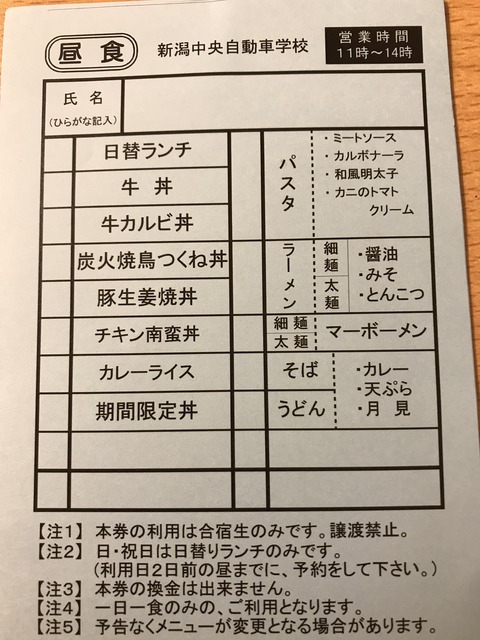 昼食
新潟中央自動車学校
営業時間
11時～14時
氏名
(ひらがな記入)
日替ランチ
牛丼
牛カルビ丼
炭火焼鳥つくね丼
豚生姜焼丼
チキン南蛮丼
カレーライス
期間限定丼
パスタ
・ミートソース
・カルボナーラ
・和風明太子
・カニのトマト
クリーム
ラーメン
細麺
太麺
・醤油
・みそ
・とんこつ
細麺
太麺
マーボーメン
そば
うどん
・カレー
・天ぷら
・月見
【注1】 本券の利用は合宿生のみです。譲渡禁止。
【注2】 日・祝日は日替りランチのみです。
(利用日2日前の昼までに、予約をして下さい。)
【注3】 本券の換金は出来ません。
【注4】 一日一食のみの、ご利用となります。
【注5】 予告なくメニューが変更となる場合があります。